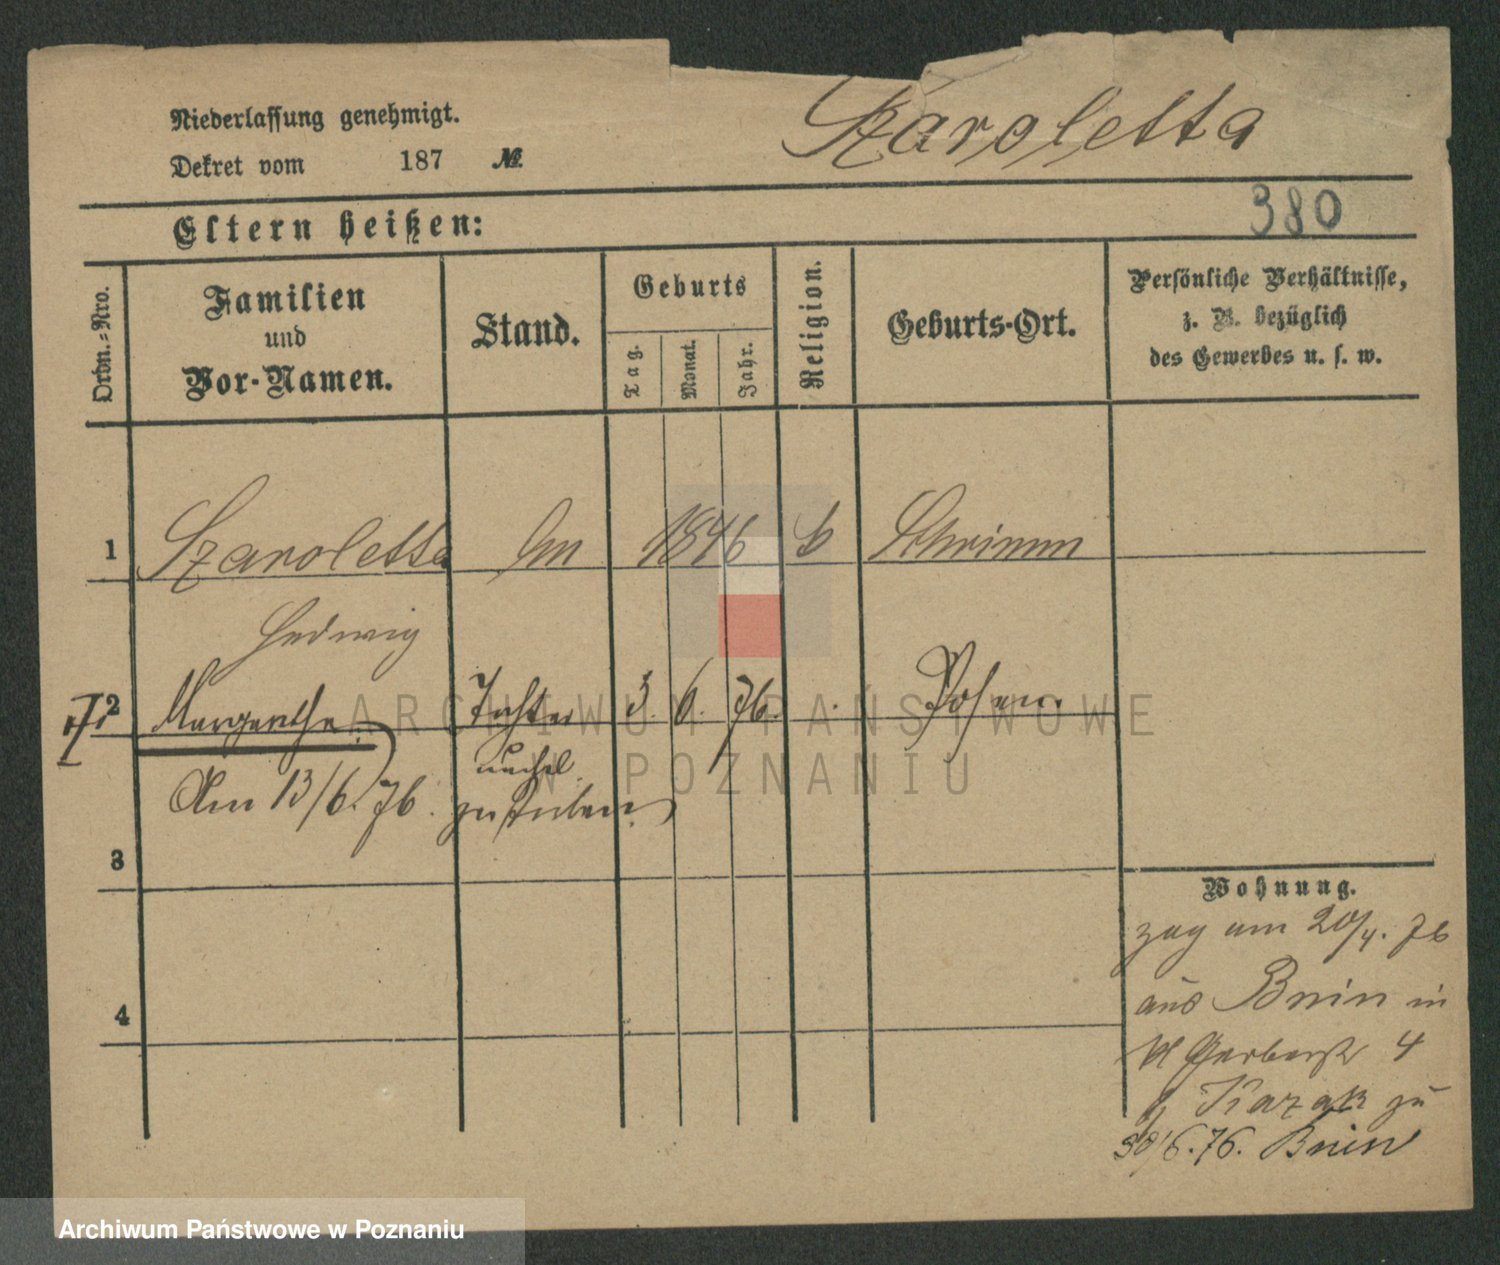 Niederlassung genehmigt.
Szaroletta
Dekret vom 187 №
Eltern heißen:
380
Ordn.-Nro.
Familien
und
Vor-Namen.
Stand.
Geburts
Tag.
Monat.
Jahr.
Religion.
Geburts-Ort.
Persönliche Verhältnisse,
z. B. bezüglich
des Gewerbes u. s. w.
1 Szaroletta 1846 Schrimm
Hedwig
2 Margarethe Tochter 3. 6. 76. Posen
unehel.
Am 13/6. 76.
ARCHIWUM PAŃSTWOWE
W POZNANIU
3
4
Wohnung.
zug am 20/4. 76
aus Bnin in
kl Gerberstr 4
b Kazak zu
30/6.76. Bnin
Archiwum Państwowe w Poznaniu